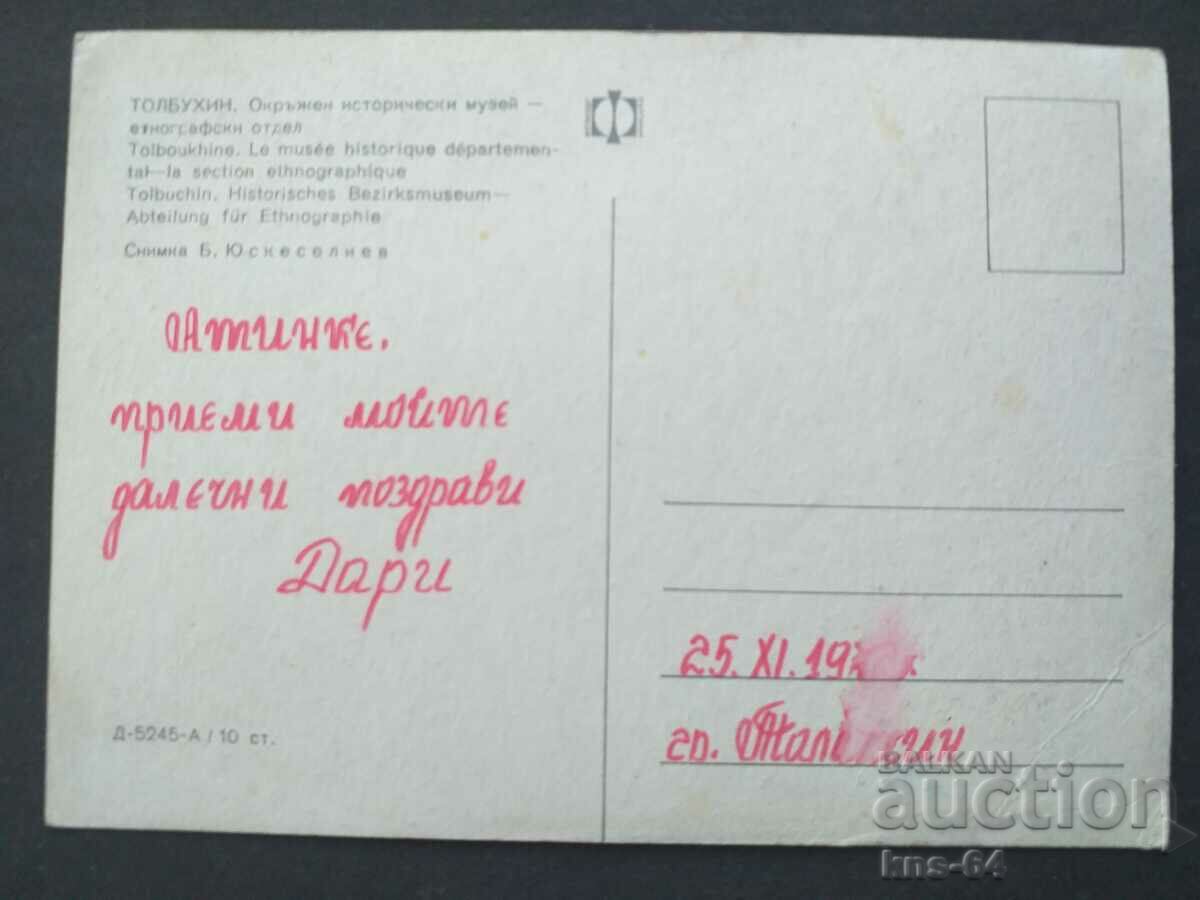 ТОЛБУХИН. Окръжен исторически музей —
етнографски отдел
Tolboukhine. Le musée historique départemen-
tal—la section ethnographique
Tolbuchin. Historisches Bezirksmuseum—
Abteilung für Ethnographie
Снимка Б. Юскеселиев
Атинке.
приеми моите
далечни поздрави
Дари
Д-5245-А / 10 ст.
25. XI. 19
гр.
BALKAN
auction
kns-64